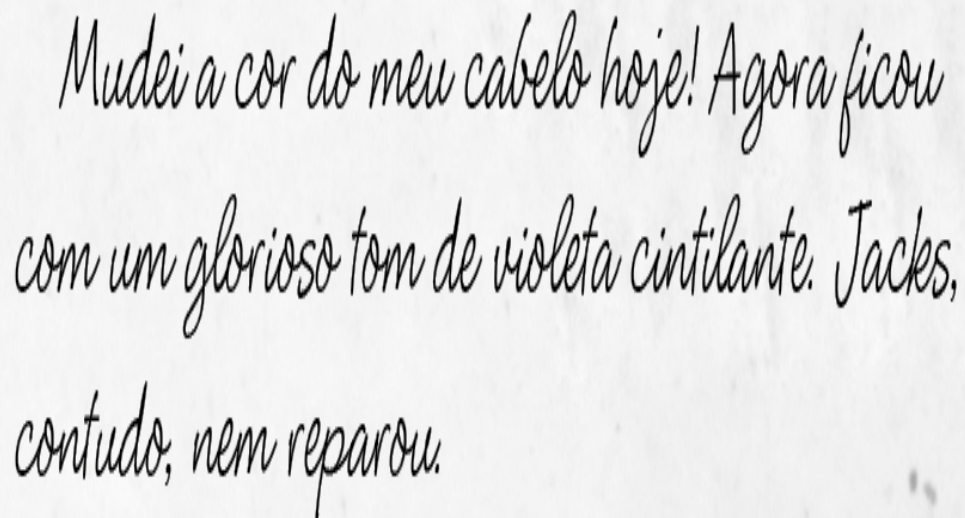 Mudei a cor do meu cabelo hoje! Agora ficou
com um glorioso tom de violeta cintilante. Jacks,
contudo, nem reparou.